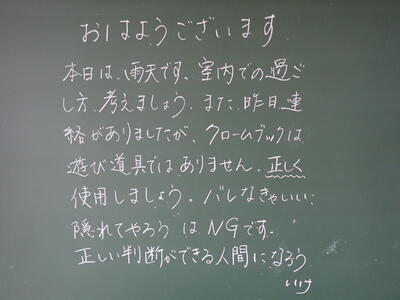 おはようございます
本日は、雨天です、室内での過ご
し方、考えましょう。また、昨日、連
絡がありましたが、クロームブックは
遊び道具ではありません。正しく
使用しましょう。バレなきゃいい、
隠れてやろう はNGです。
正しい判断ができる人間になろう
いけ